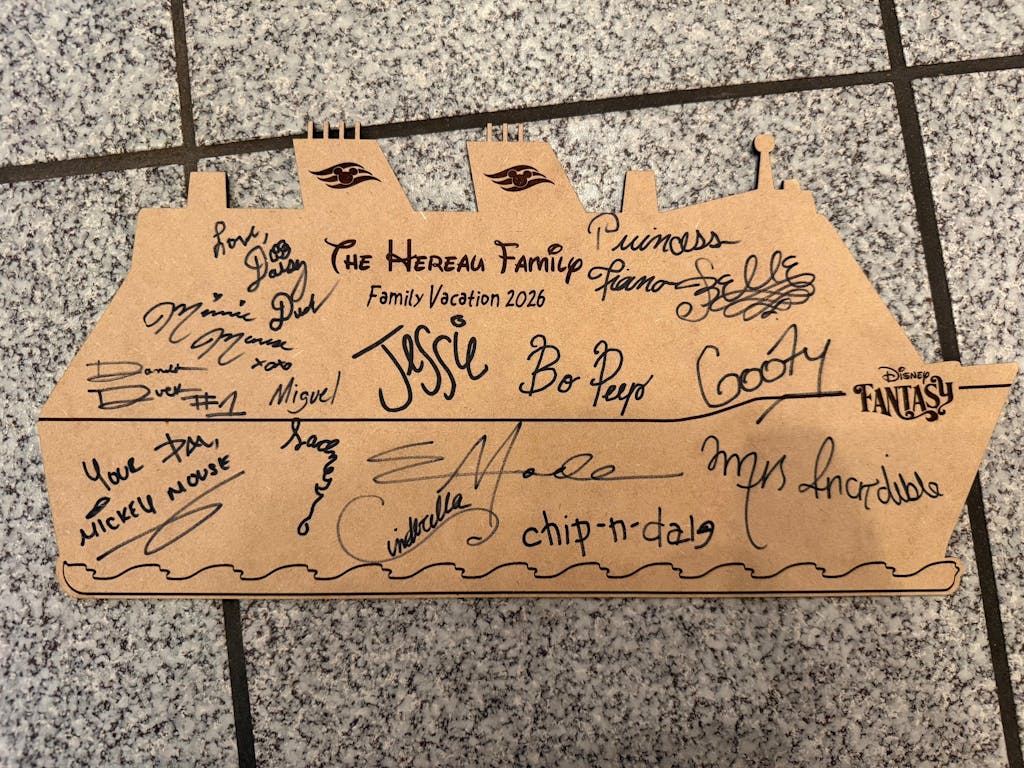 THE HEREAU FAMILY
Family Vacation 2026
Love,
Daisy
Duck
Minnie
Mouse
xoxo
Princess
Tiana
Belle
Donald
Duck #1
Miguel
JESSIE
Bo Peep
Goofy
DISNEY
FANTASY
YOUR PAL,
MICKEY MOUSE
E Mode
Cinderella
chip-n-dale
Mrs Incredible